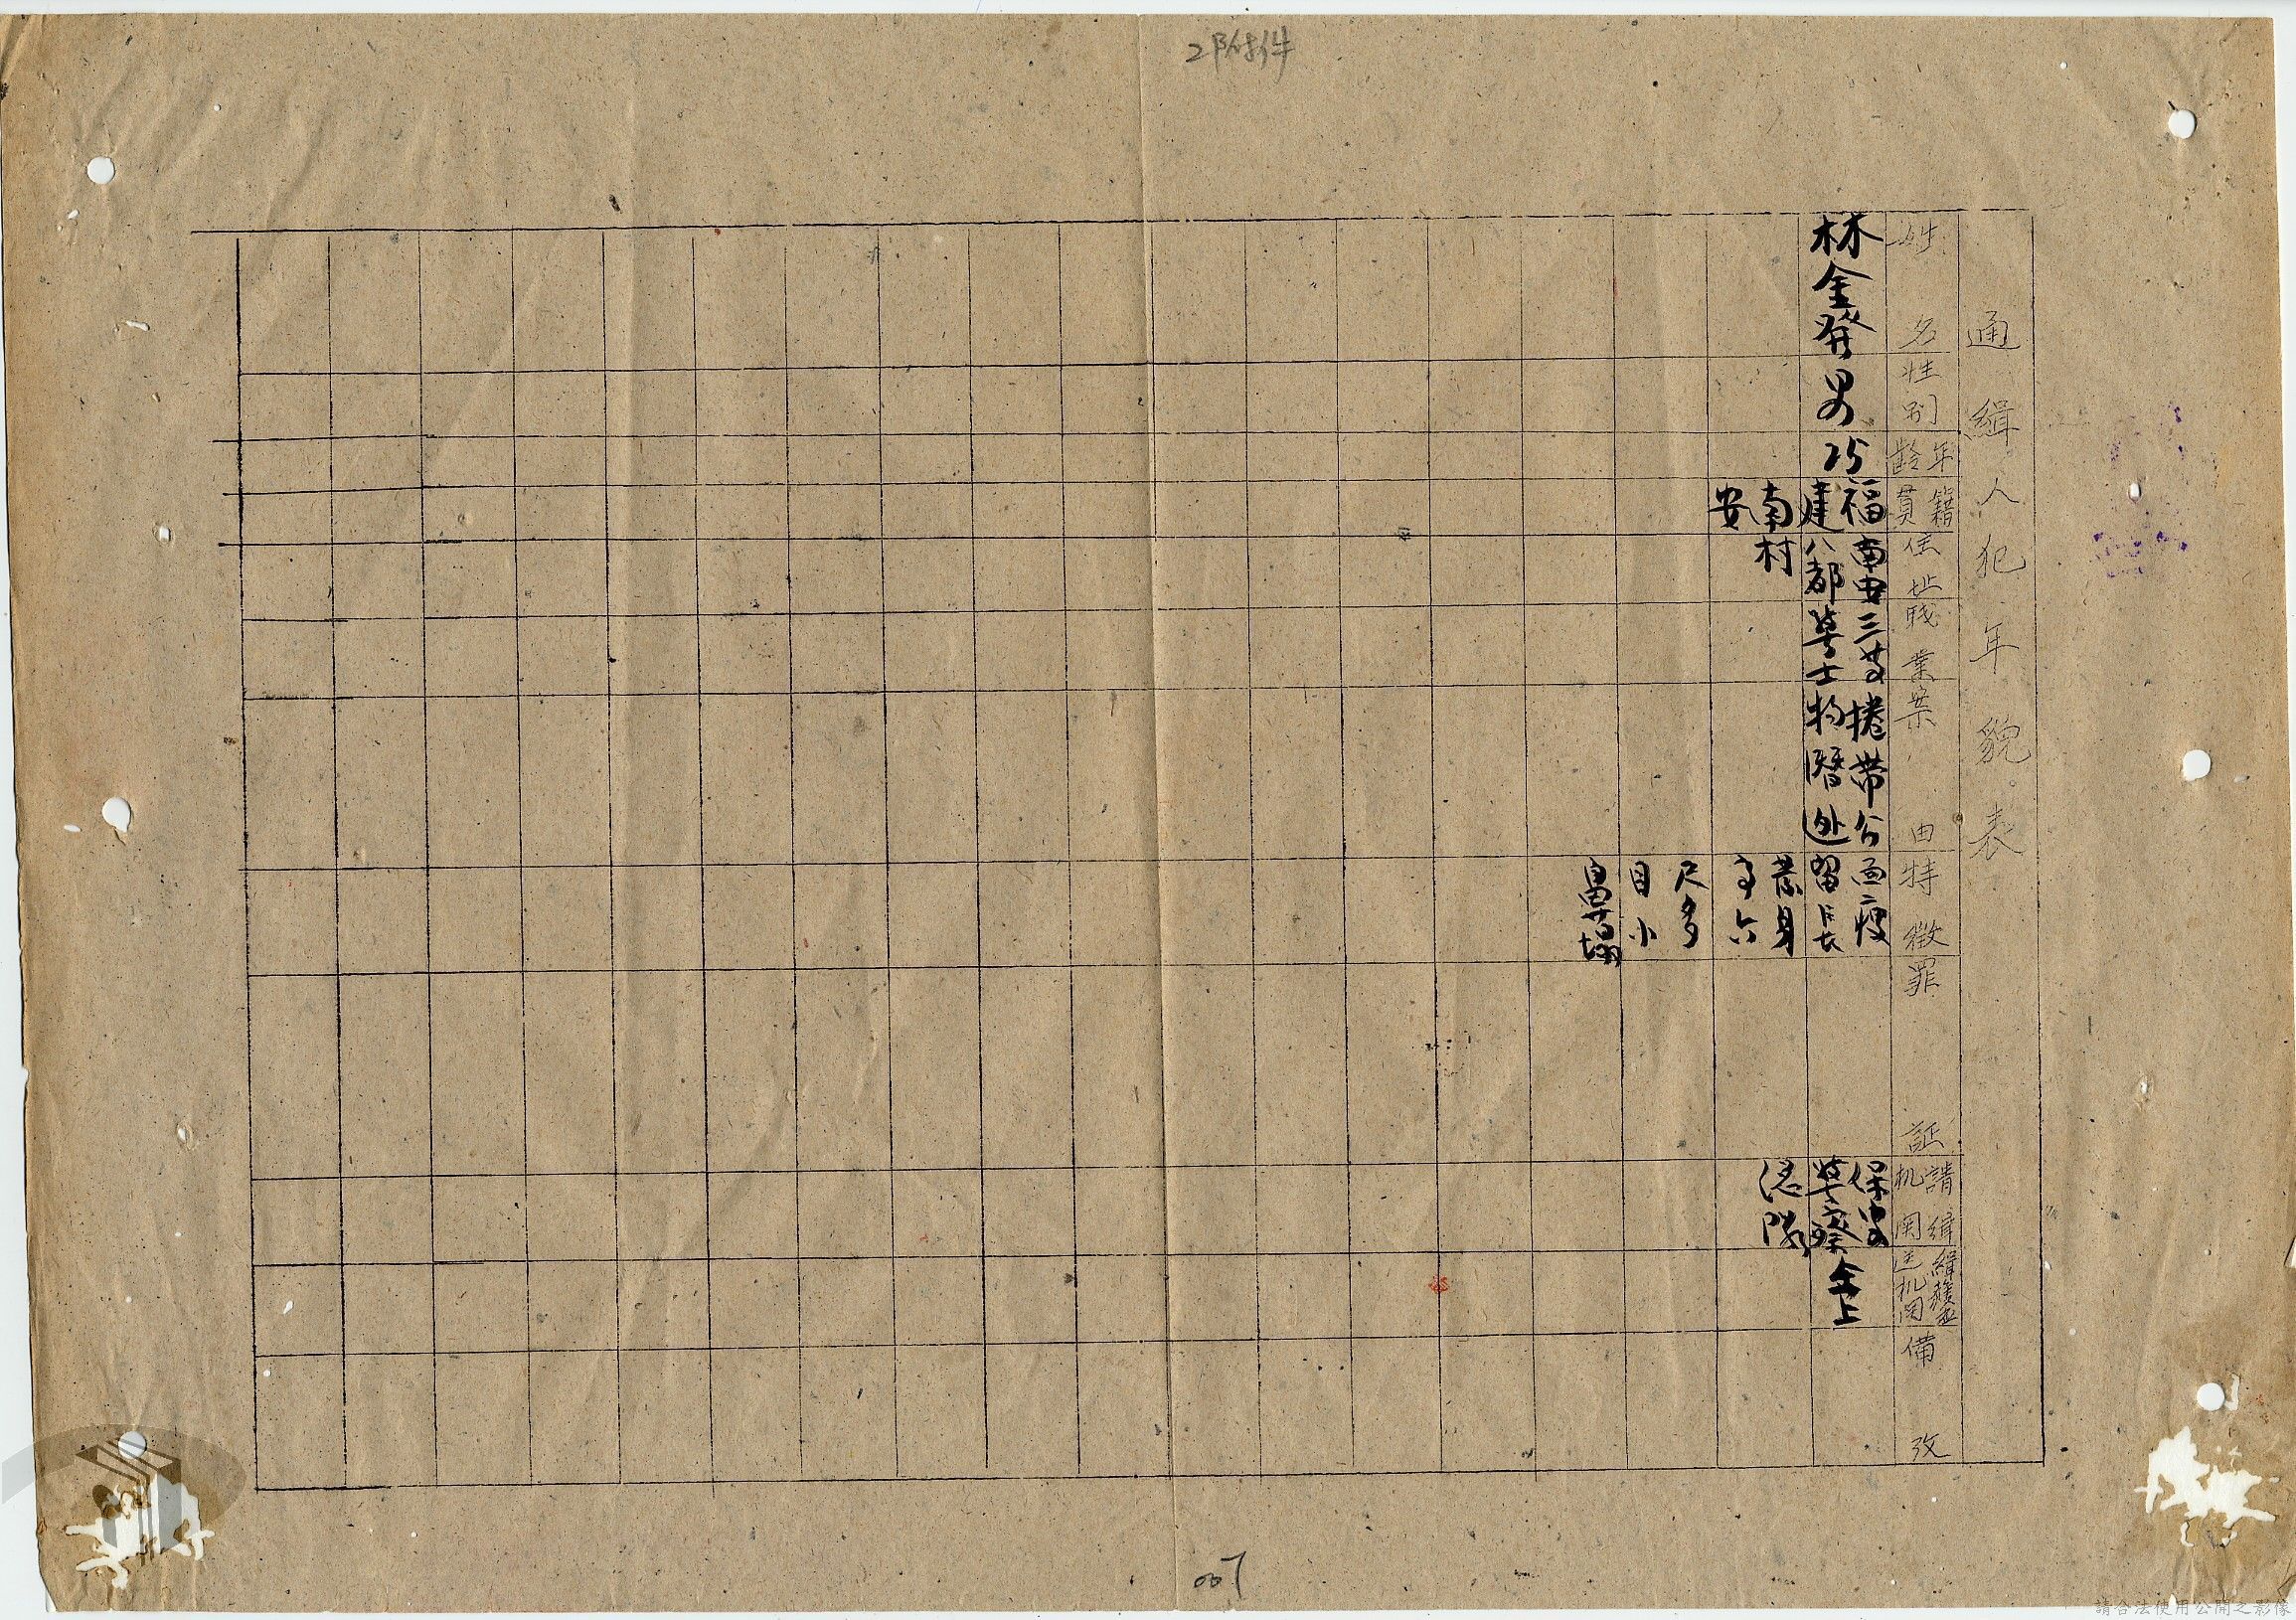 附件
通緝人犯年貌表
姓名
性別
年齡
籍貫
住址
職業
案由
特徵
罪証
請緝机関
緝獲
机関
備攷
林金發
男
25
福建南安
南安八都村
三等警士
捲帶公物潛逃
面瘦
留長
身
六
尺多
目小
鼻塌
保安警察總隊
仝上
007
請合法使用公開之影像